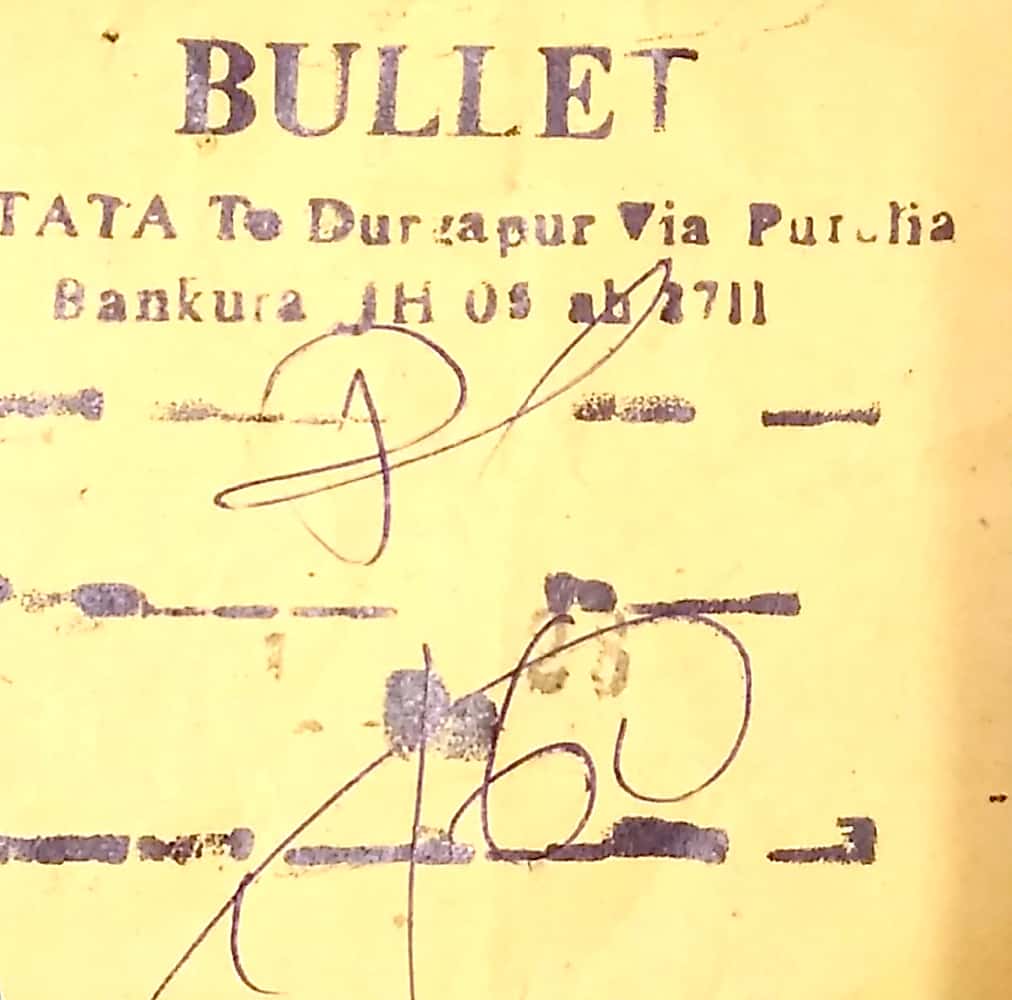 BULLET
TATA To Durgapur Via Purulia
Bankura JH 05
160